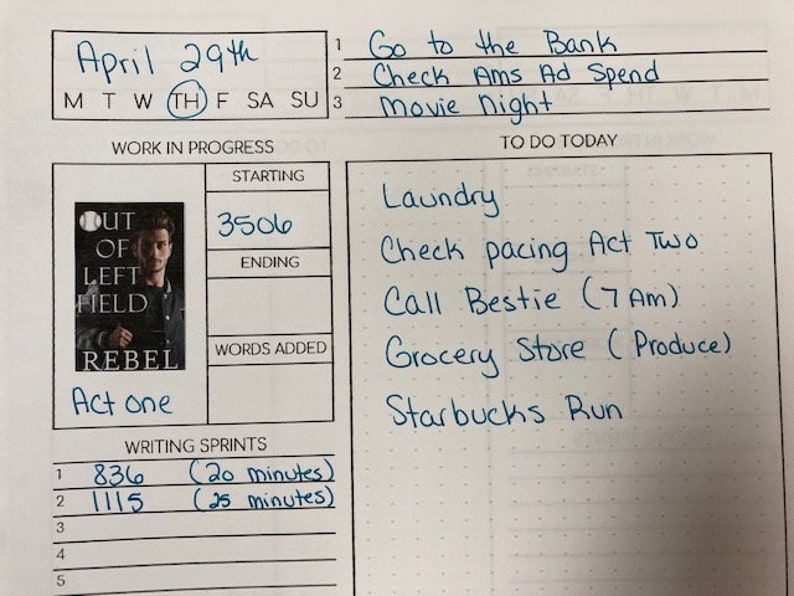 April 29th
M T W TH F SA SU
1 Go to the Bank
2 Check Ams Ad Spend
3 Movie Night
WORK IN PROGRESS
STARTING
3506
ENDING
WORDS ADDED
OUT
OF
LEFT
FIELD
REBEL
Act one
WRITING SPRINTS
1 836 (20 minutes)
2 1115 (25 minutes)
3
4
5
TO DO TODAY
Laundry
Check pacing Act Two
Call Bestie (7 Am)
Grocery Store (Produce)
Starbucks Run